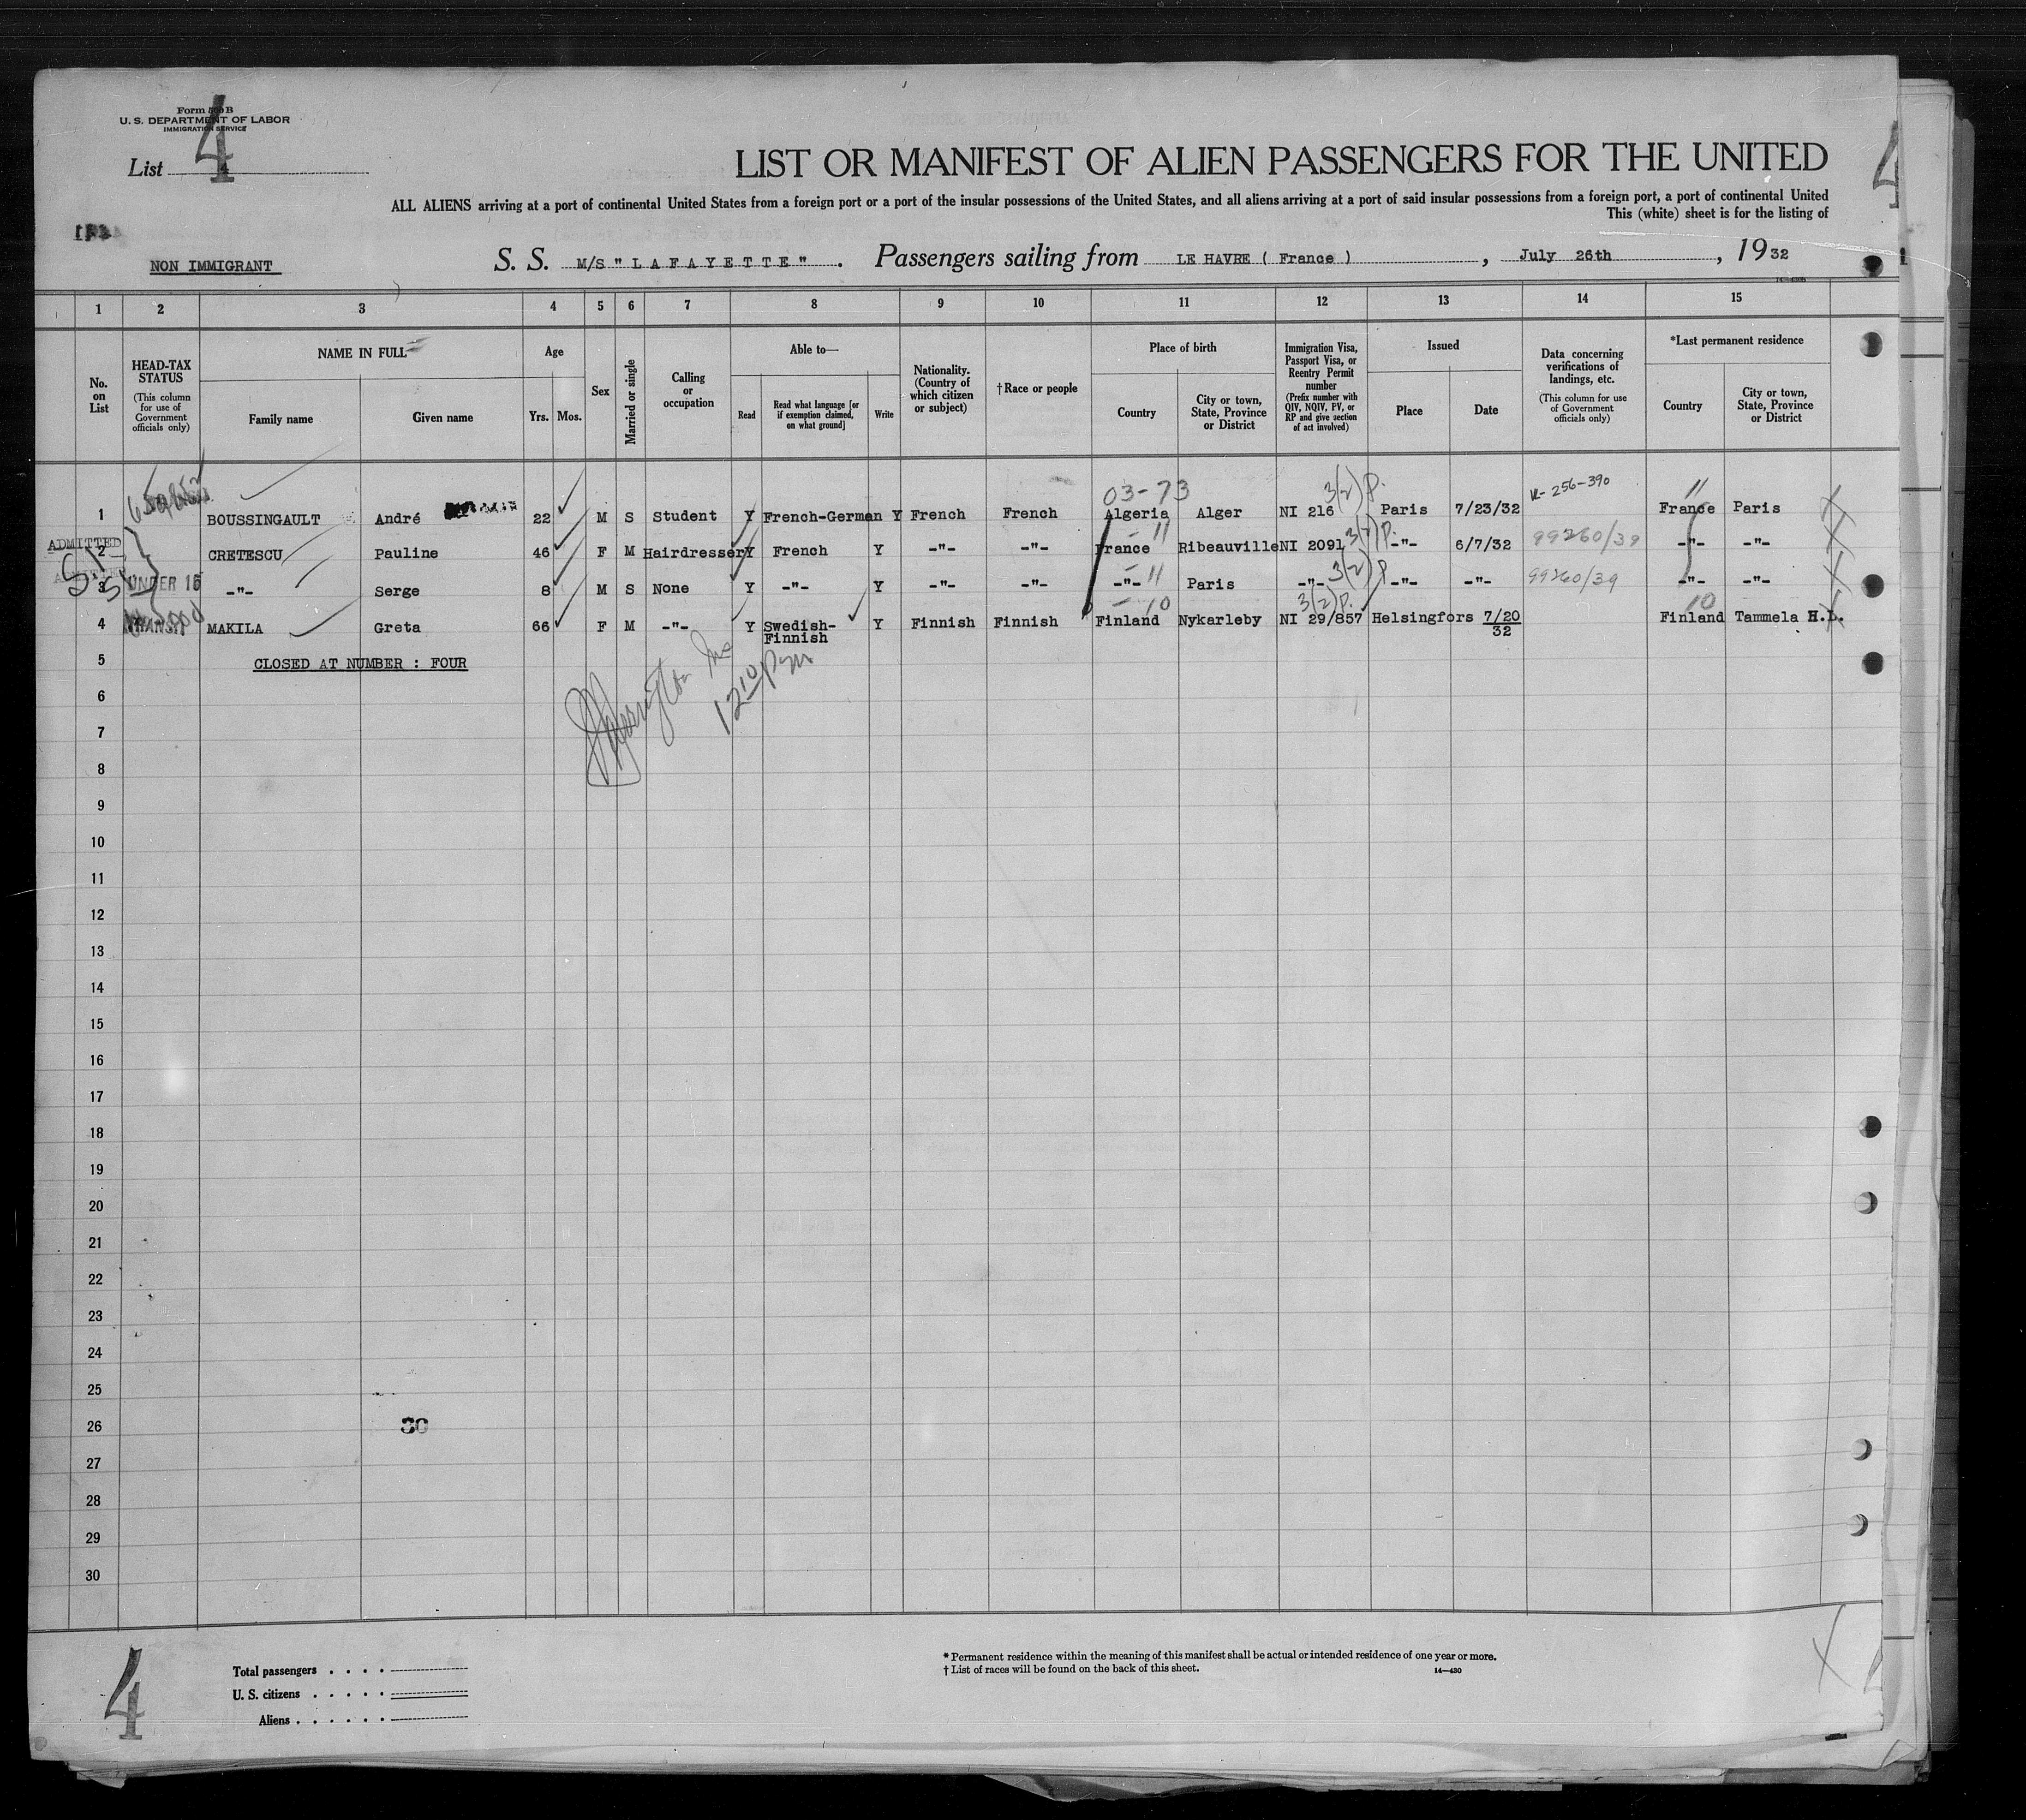 Form 500 B
U. S. DEPARTMENT OF LABOR
IMMIGRATION SERVICE
List 4
4
LIST OR MANIFEST OF ALIEN PASSENGERS FOR THE UNITED
ALL ALIENS arriving at a port of continental United States from a foreign port or a port of the insular possessions of the United States, and all aliens arriving at a port of said insular possessions from a foreign port, a port of continental United
This (white) sheet is for the listing of
NON IMMIGRANT
S. S. M/S "LAFAYETTE". Passengers sailing from LE HAVRE ( France ), July 26th, 1932
1 2 3 4 5 6 7 8 9 10 11 12 13 14 15
No. on List
HEAD-TAX STATUS
(This column for use of Government officials only)
NAME IN FULL
Family name Given name
Age
Yrs. Mos.
Sex
Married or single
Calling or occupation
Able to—
Read
Read what language [or if exemption claimed, on what ground]
Write
Nationality. (Country of which citizen or subject)
†Race or people
Place of birth
Country
City or town, State, Province or District
Immigration Visa, Passport Visa, or Reentry Permit number
(Prefix number with QIV, NQIV, PV, or RP and give section of act involved)
Issued
Place Date
Data concerning verifications of landings, etc.
(This column for use of Government officials only)
*Last permanent residence
Country
City or town, State, Province or District
03-73 3(2)P. 256-390 11
1 BOUSSINGAULT André 22 M S Student Y French-German Y French French Algeria Alger NI 216 Paris 7/23/32 France Paris
11 3(2)P.
ADMITTED 2 CRETESCU Pauline 46 F M Hairdresser Y French Y -"- -"- France Ribeauville NI 2091 -"- 6/7/32 99260/39 -"- -"-
11 3(2)P
3 UNDER 16 -"- Serge 8 M S None Y -"- Y -"- -"- -"- Paris -"- -"- -"- 99260/39 -"- -"-
10 3(2)P. 10
4 TRANSIT MAKILA Greta 66 F M -"- Y Swedish-Finnish Y Finnish Finnish Finland Nykarleby NI 29/857 Helsingfors 7/20/32 Finland Tammela H.L.
5 CLOSED AT NUMBER : FOUR
12 10 pm
6
7
8
9
10
11
12
13
14
15
16
17
18
19
20
21
22
23
24
25
26
27
28
29
30
4
Total passengers . . . .
U. S. citizens . . . . .
Aliens . . . . . .
* Permanent residence within the meaning of this manifest shall be actual or intended residence of one year or more.
† List of races will be found on the back of this sheet. 14—430